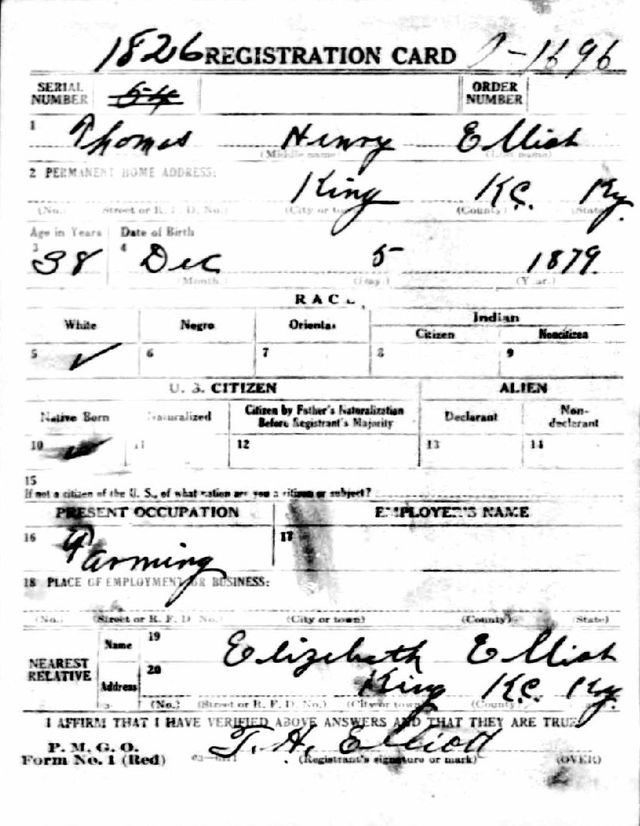 1826 REGISTRATION CARD 1696
SERIAL NUMBER 54 ORDER NUMBER
1 Thomas Henry Elliott
(Middle name) (Last name)
2 PERMANENT HOME ADDRESS:
King K.C. Ky.
(No.) (Street or R. F. D. No.) (City or town) (County) (State)
Age in Years Date of Birth
3 38 4 Dec 5 1879.
(Month) (Day) (Year)
RACE
White Negro Oriental Indian
Citizen Noncitizen
5 ✓ 6 7 8 9
U. S. CITIZEN ALIEN
Native Born Naturalized Citizen by Father's Naturalization Before Registrant's Majority Declarant Non-declarant
10 11 12 13 14
15
If not a citizen of the U. S., of what nation are you a citizen or subject?
PRESENT OCCUPATION EMPLOYER'S NAME
16 Farming 17
18 PLACE OF EMPLOYMENT OR BUSINESS:
(No.) (Street or R. F. D. No.) (City or town) (County) (State)
NEAREST RELATIVE Name 19 Elizebeth Elliott
Address 20 King K.C. Ky.
(No.) (Street or R. F. D. No.) (City or town) (County) (State)
I AFFIRM THAT I HAVE VERIFIED ABOVE ANSWERS AND THAT THEY ARE TRUE
P. M. G. O. T. H. Elliott
Form No. 1 (Red) (Registrant's signature or mark) (OVER)